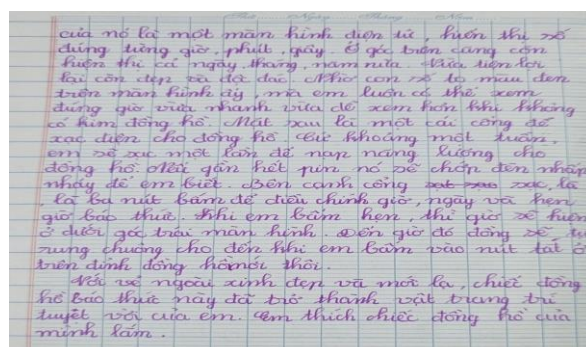 của nó là một màn hình điện tử, hiển thị số
đúng từng giờ, phút, giây. Ở góc trên cùng còn
hiển thị cả ngày, tháng, năm nữa. Vừa tiện lợi
lại còn đẹp và độc đáo. Nhờ con số to màu đen
trên màn hình ấy, mà em luôn có thể xem
đúng giờ vừa nhanh vừa dễ xem hơn khi không
có kim đồng hồ. Mặt sau là một cái cổng để
xạc điện cho đồng hồ. Cứ khoảng một tuần,
em sẽ xạc một lần để nạp năng lượng cho
đồng hồ. Nếu gần hết pin nó sẽ chớp đèn nhấp
nháy để em biết. Bên cạnh cổng xạc, là
là ba nút bấm để điều chỉnh giờ, ngày và hẹn
giờ báo thức. Khi em bấm hẹn, thì giờ sẽ hiện
ở dưới góc trái màn hình. Đến giờ đó đồng sẽ, tự
rung chuông cho đến khi em bấm vào nút tắt ở
trên đỉnh đồng hồ mới thôi.
Với vẻ ngoài xinh đẹp và mới lạ, chiếc đồng
hồ báo thức này đã trở thành vật trang trí
tuyệt vời của em. Em thích chiếc đồng hồ của
mình lắm.